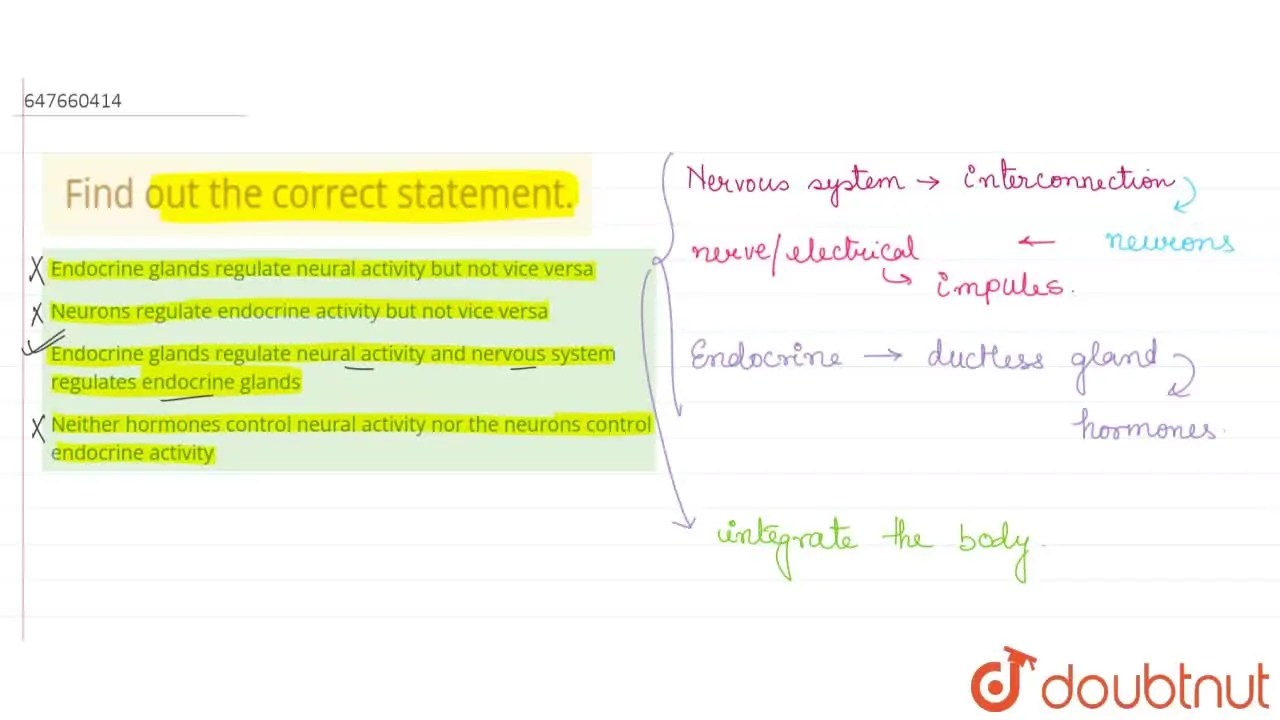 647660414
Find out the correct statement.
Endocrine glands regulate neural activity but not vice versa
Neurons regulate endocrine activity but not vice versa
Endocrine glands regulate neural activity and nervous system
regulates endocrine glands
Neither hormones control neural activity nor the neurons control
endocrine activity
Nervous system → interconnection
neurons
nerve/electrical ←
↳ impules.
Endocrine → ductless gland
hormones.
integrate the body.
doubtnut